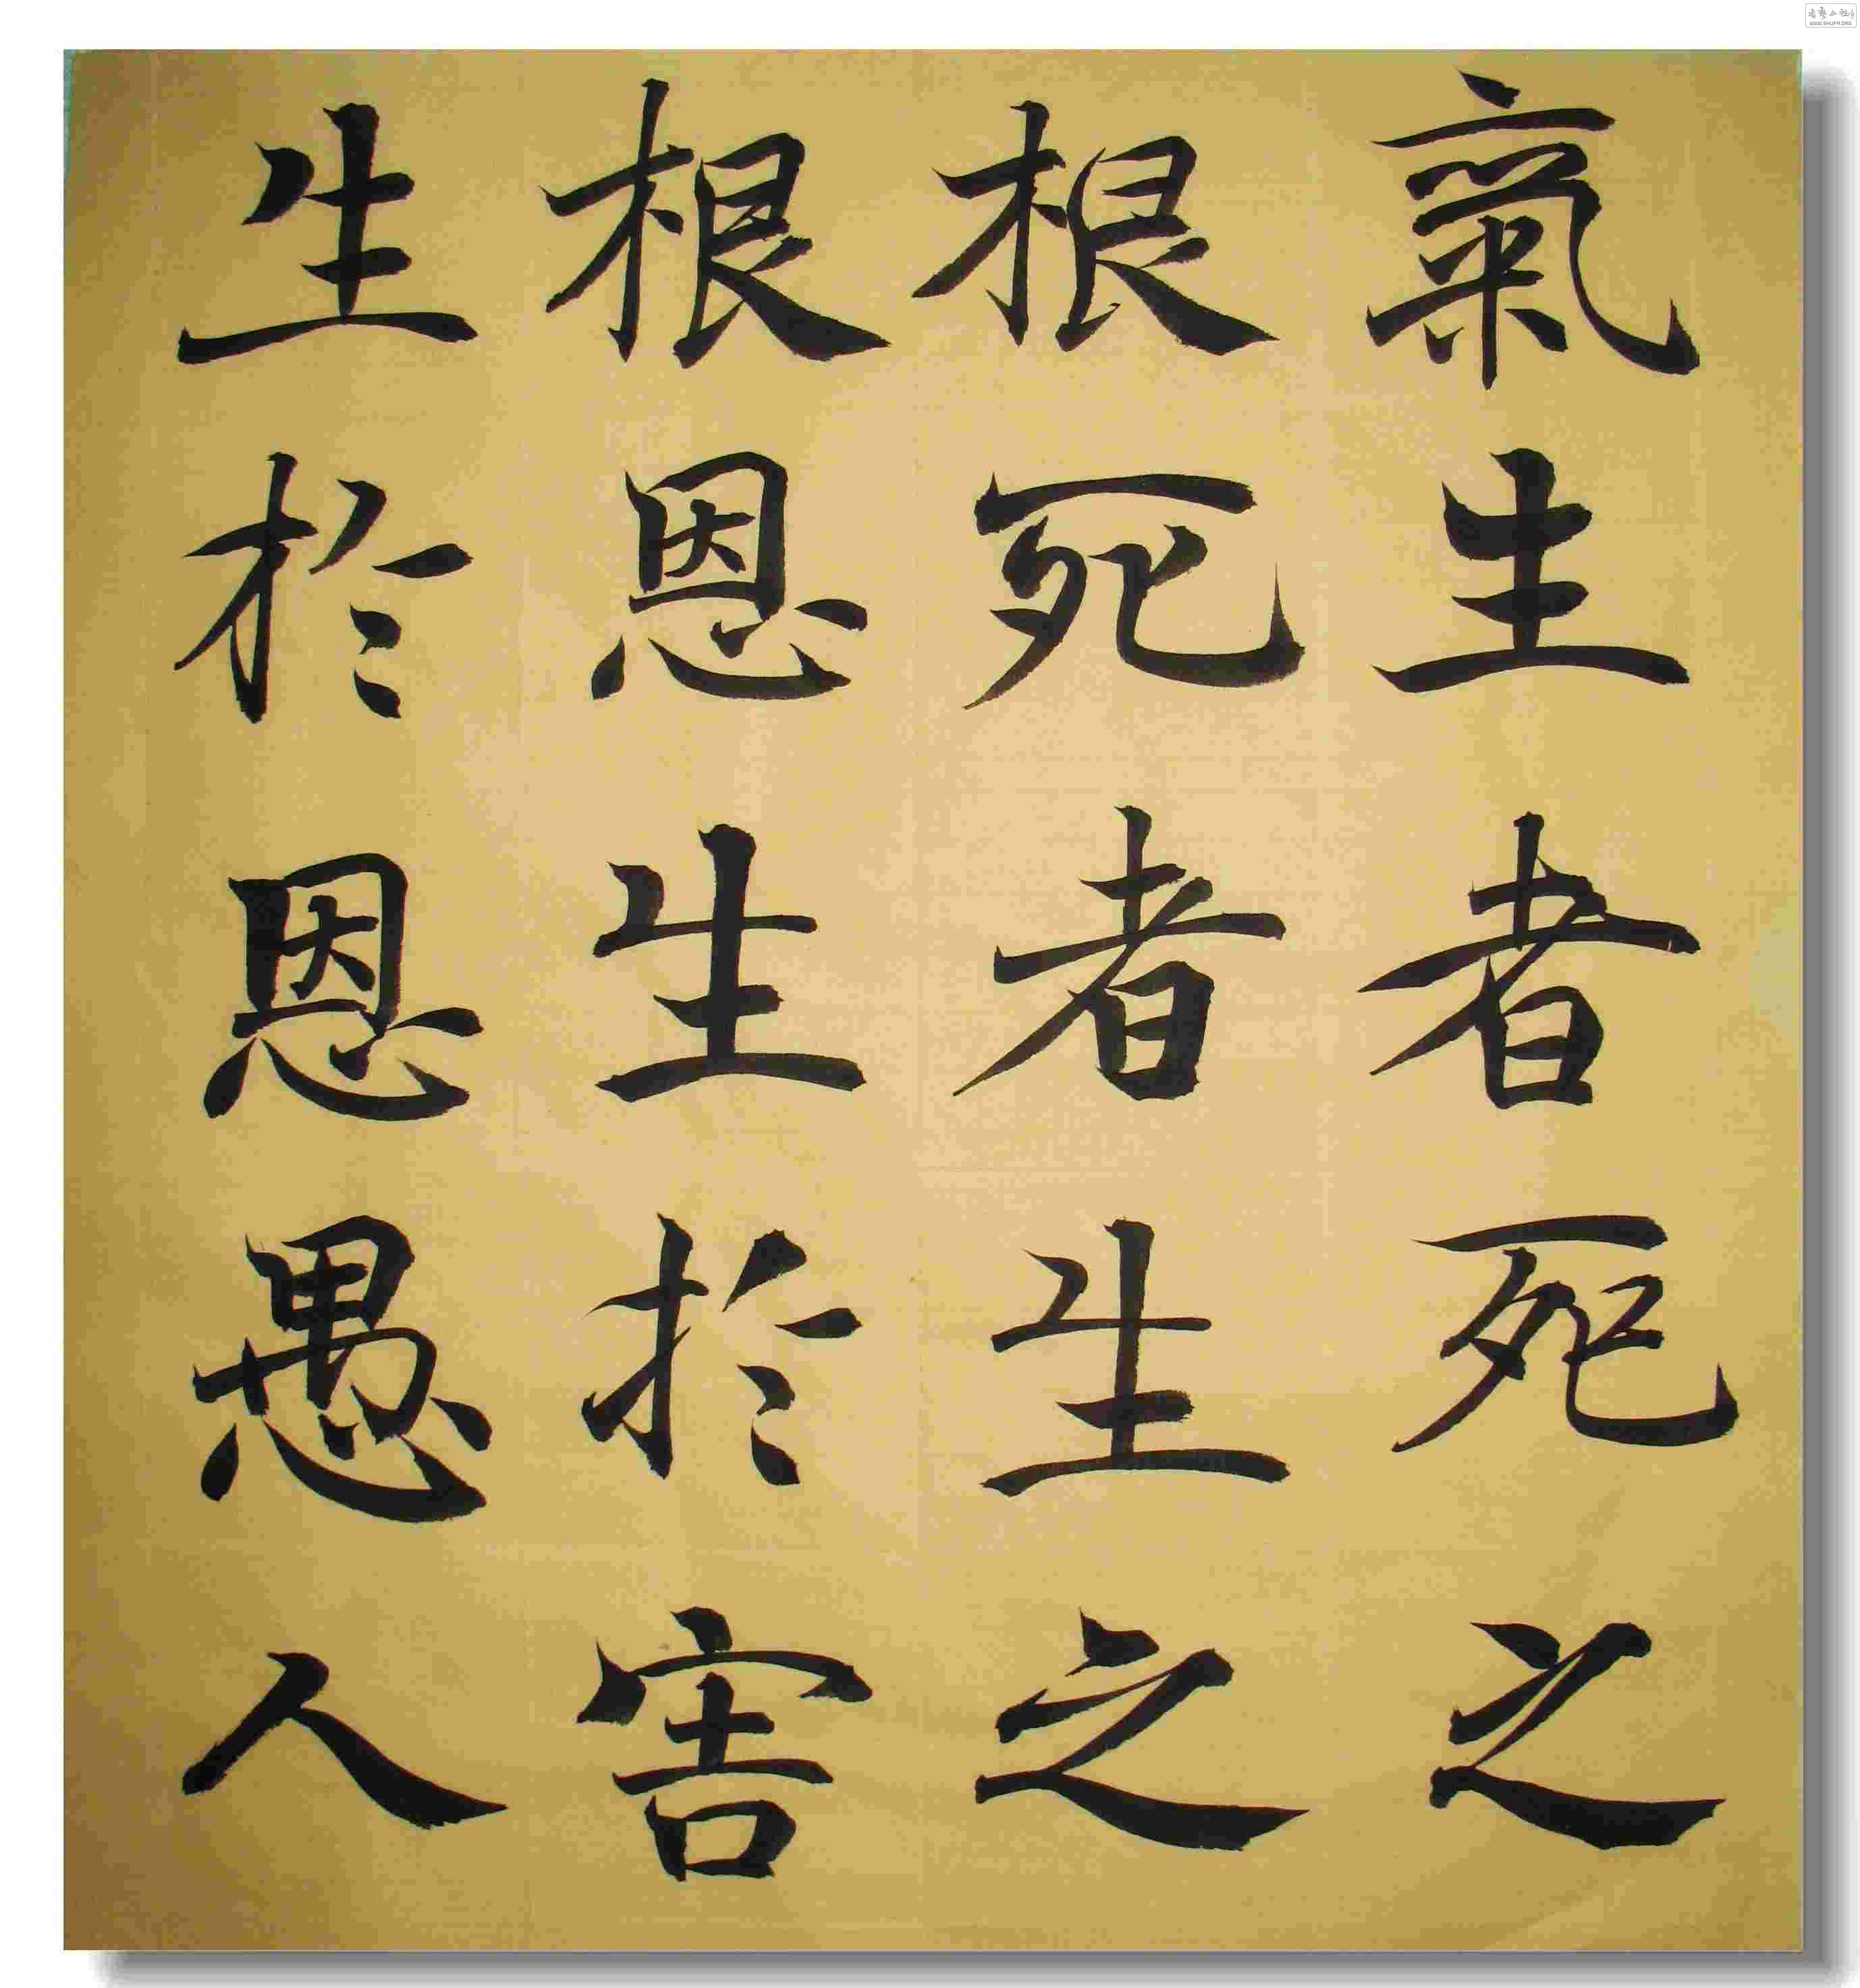 氣生者死之
根死者生之
根恩生於害
生於恩愚人
WWW.SHUFA.ORG